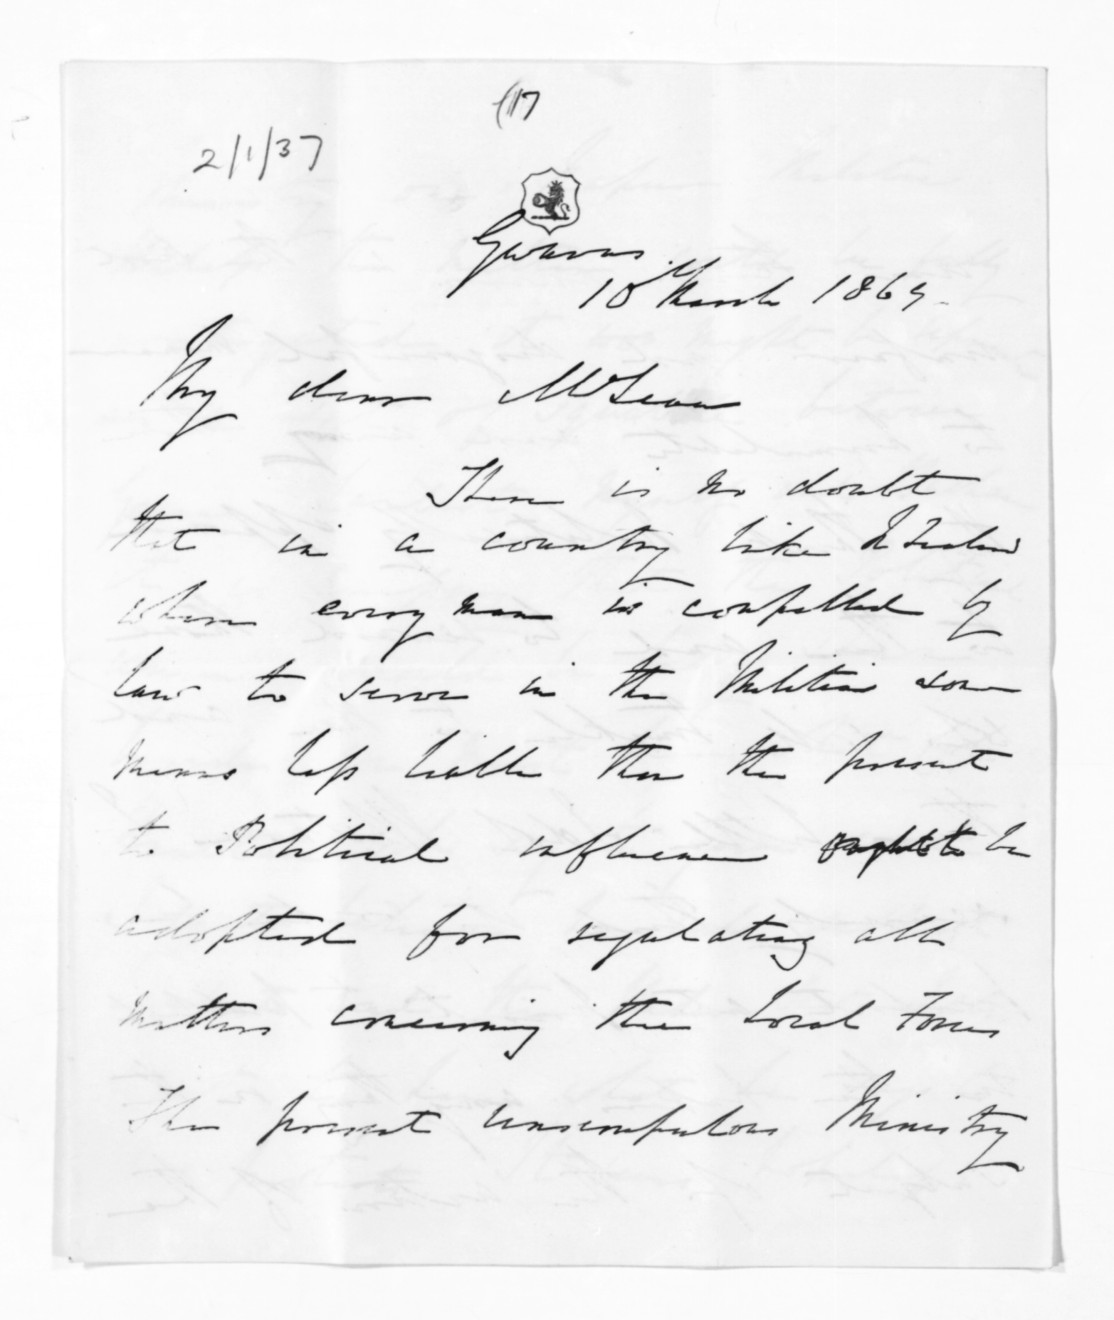 (117
2/1/37
Gwavas
10 March 1869.
My dear McLean
There is no doubt
that in a country like N Zealand
where every man is compelled by
law to serve in the Militia some
means less liable than the present
to Political influence ought to be
adopted for regulating all
matters concerning the Local Forces
The present unscrupulous Ministry